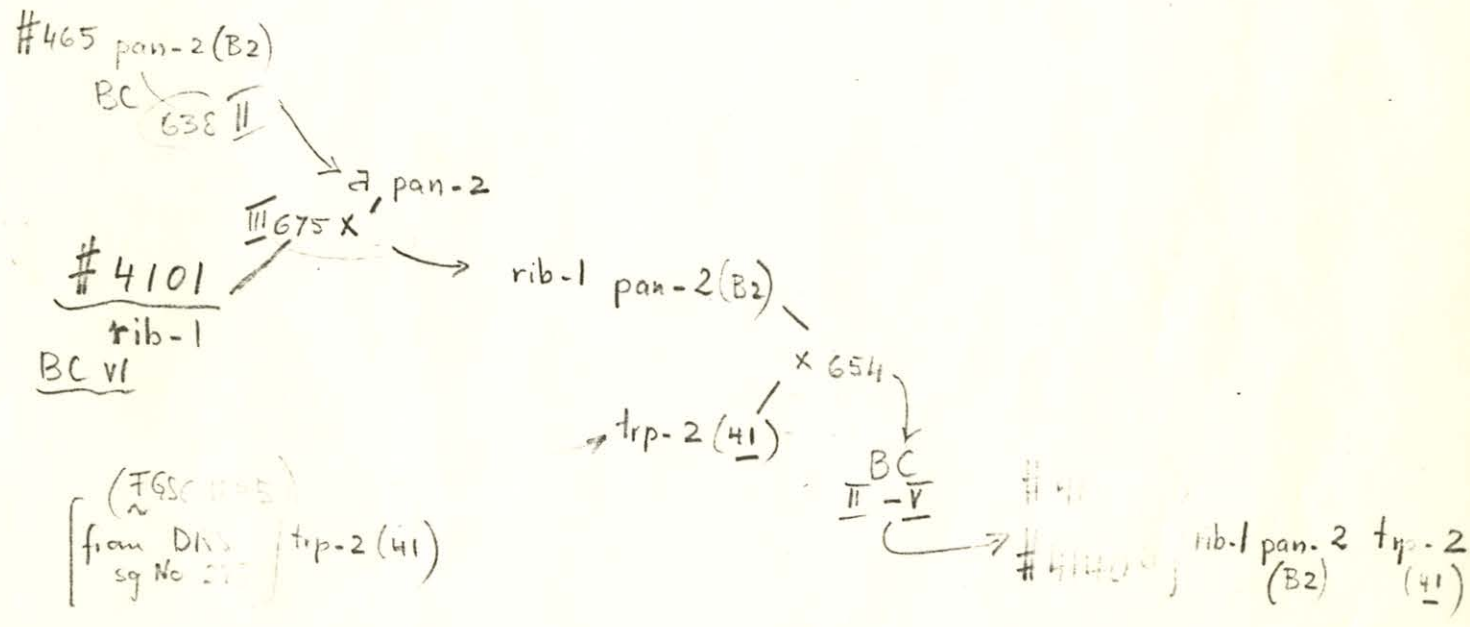 #465 pan-2 (B2)
BC 638 II
a, pan-2
III 675 X
#4101
rib-1
BC VI
rib-1 pan-2 (B2)
X 654
trp-2 (41)
BC
II - V
(FGSC
from
sg No
trp-2 (41)
rib-1 pan-2 trp-2
(B2) (41)